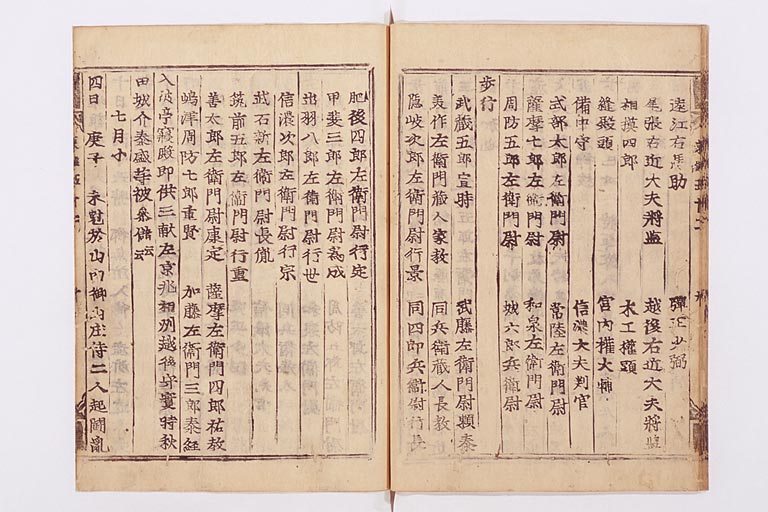 遠江右馬助 弾正少弼
尾張右近大夫将監 越後右近大夫将監
相摸四郎 木工權頭
縫殿頭 宮内權大輔
備中守 信濃大夫判官
式部太郎左衛門尉 常陸左衛門尉
薩摩七郎左衛門尉 和泉左衛門尉
周防五郎左衛門尉 城六郎兵衛尉
歩行
武藏五郎宣時 武藤左衛門尉頼泰
美作左衛門藏人家教 同兵衛藏人長教
隠岐次郎左衛門尉行景 同四郎兵衛尉行長
肥後四郎左衛門尉行定
甲斐三郎左衛門尉為成
出羽八郎左衛門尉行世
信濃次郎左衛門尉行宗
武石新左衛門尉長胤
筑前五郎左衛門尉行重
善太郎左衛門尉康定 薩摩左衛門四郎祐教
嶋津周防七郎重賢 加藤左衛門三郎泰経
入彼亭寝殿即供三献左京兆相州越後守實時秋
田城介泰盛等被参儲云
七月小
四日 庚子 未尅於山内御山庄侍二人起闘乱